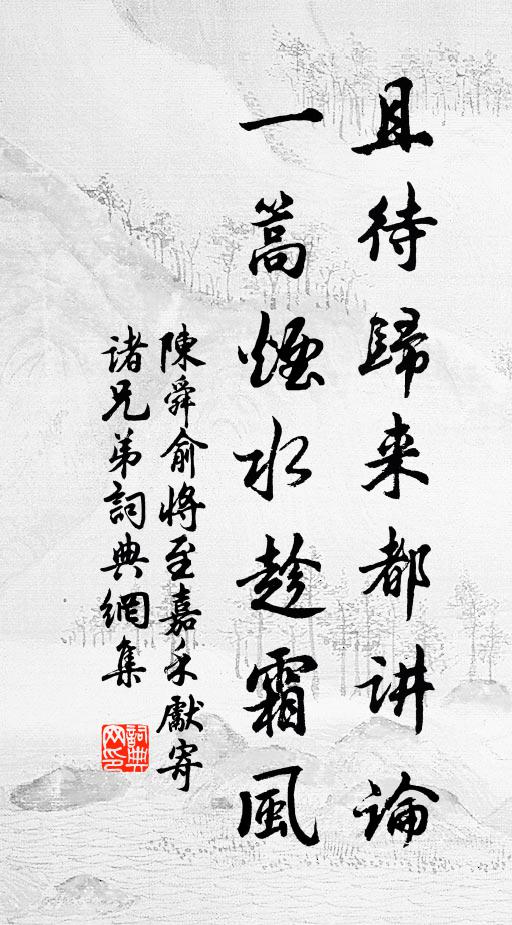 且待歸来都讲論
一篙煙水趁霜風
陳舜俞將至嘉禾獻寄
诸兄弟詞典網集
詞典网印